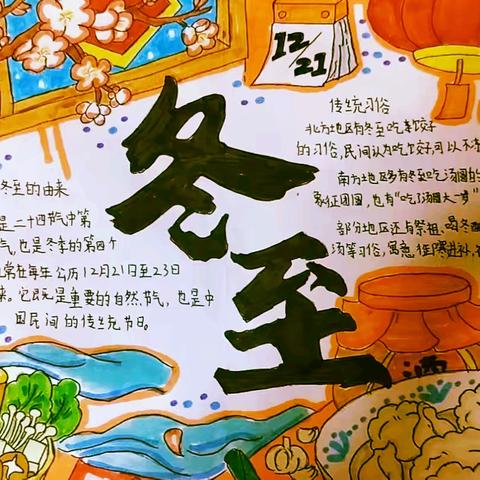 12/21
冬至
冬至的由来
是二十四节气中第
气,也是冬季的第四个
常在每年公历12月21日至23日
来。它既是重要的自然节气,也是中
国民间的传统节日。
传统习俗
北方地区有冬至吃饺子
的习俗,民间认为吃饺子,可以不
南方地区多有冬至吃汤圆的
象征团圆,也有“吃了汤圆大一岁”
部分地区还与祭祖、喝冬
汤等习俗,寓意
酒